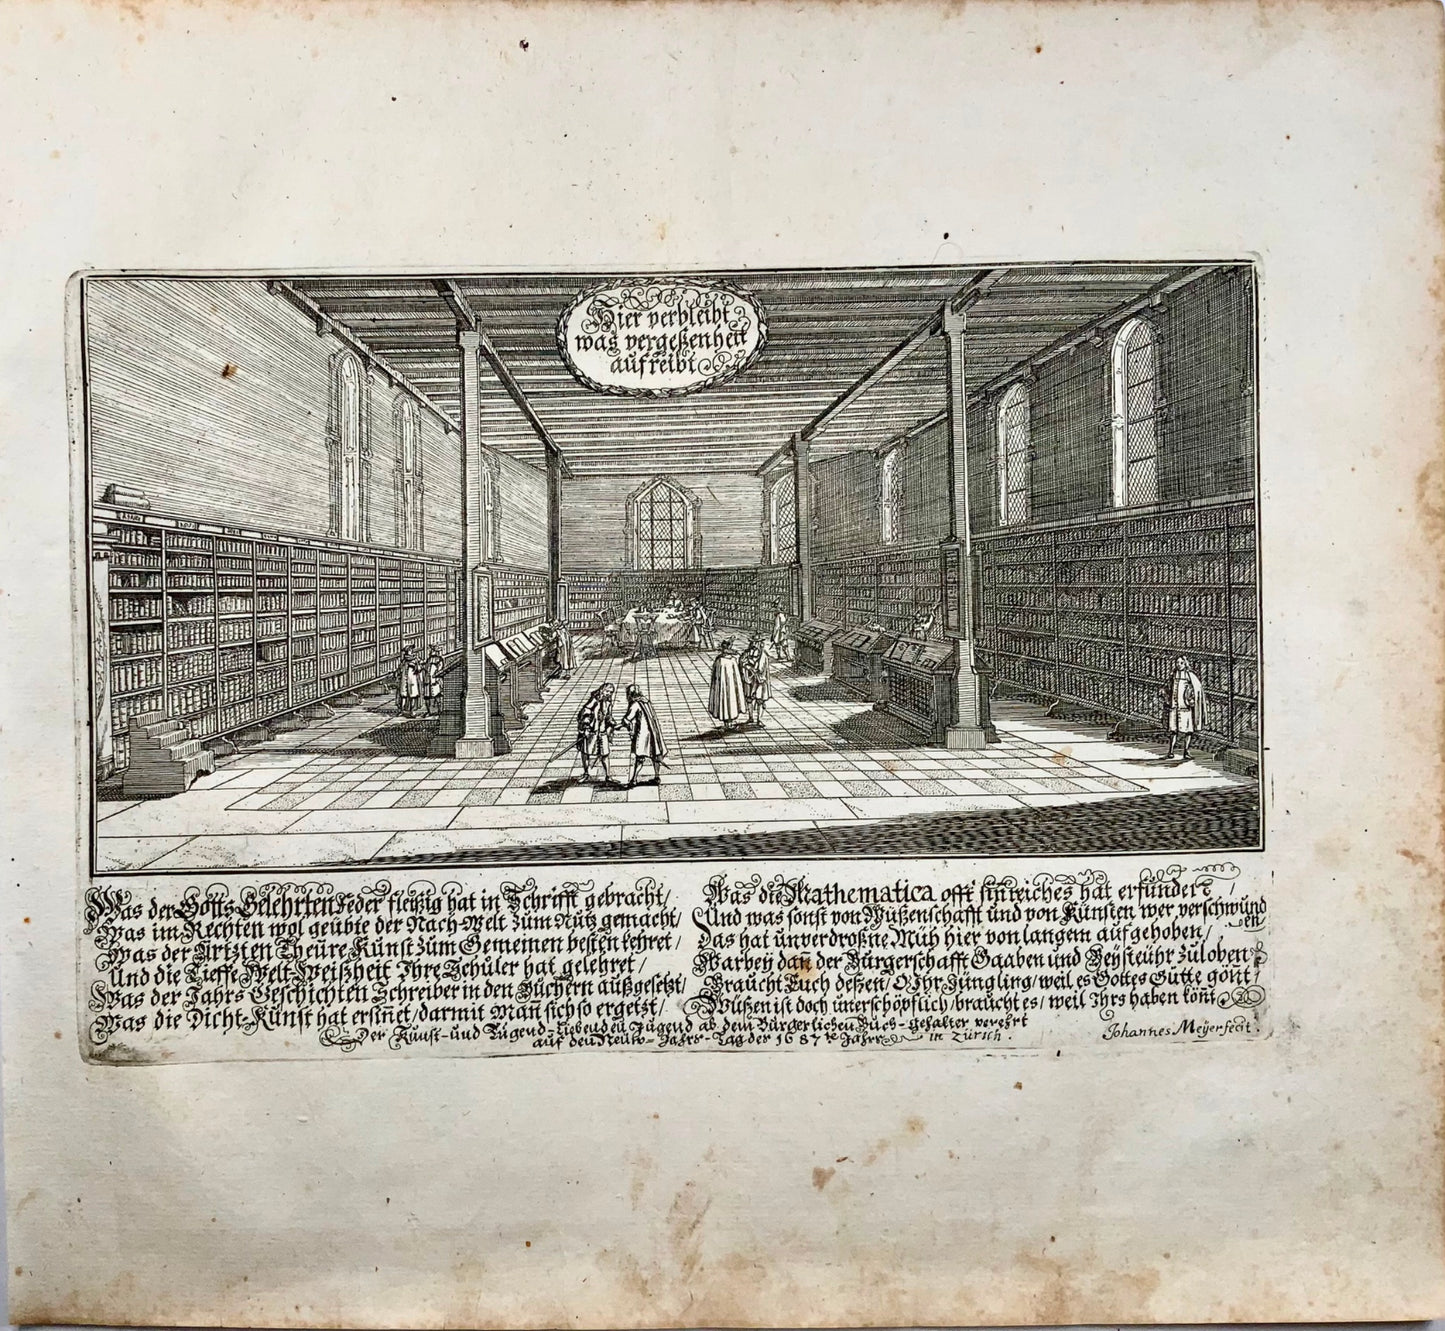 Hier verbleibt
was vergeßenheit
aufreibt
Was der Gotts-Gelehrten Feder fleißig hat in Schrifft gebracht/
Was im Rechten wol geübte der Nach-Welt zum Nütz gemacht/
Was der Ärtzten Theüre Künst züm Gemeinen besten kehret/
Und die Tieffe Welt-Weißheit Ihre Schüler hat gelehret/
Was der Jahrs Geschichten Schreiber in den Büchern außgesetzt/
Was die Dicht-Künst hat ersiñet/darmit Mañ sich so ergetzt/
Was die Mathematica offt sinreiches hat erfunden/
Und was sonst von Wüßenschafft und von Künsten wer verschwunden
Das hat unverdroßne Müh hier von langem aufgehoben/
Warbeÿ dañ der Bürgerschafft Gaaben und Beÿsteühr zü loben
Braucht Euch deßen/O Ihr Jüngling/weil es Gottes Gütte gönt/
Wüßen ist doch unerschöpflich/braucht es/weil Ihrs haben köñt
Der Künst-und Tügend-Liebenden Jugend ab dem Bürgerlichen Büch-gehalter verehrt
auf den Neüw-Jahrs-Tag des 1687 Jahrs in Zürich.
Johannes Meÿer fecit.